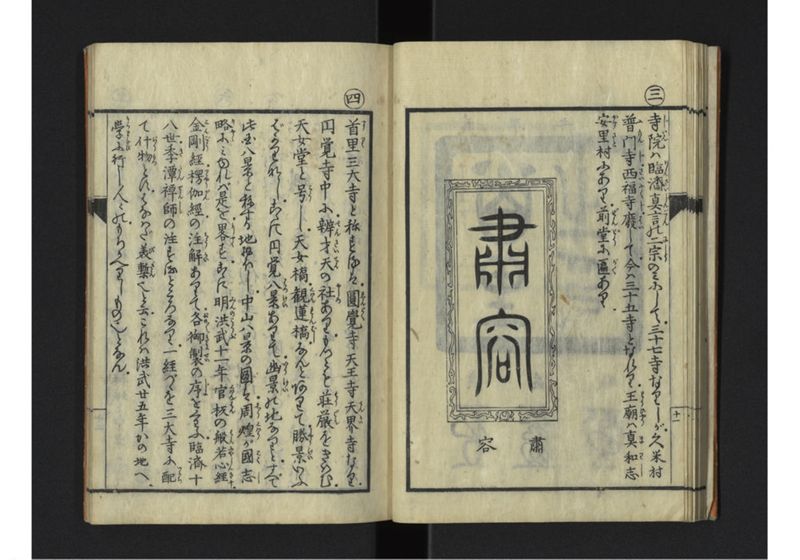 三
寺院ハ臨濟真言の二宗のミにして三十七寺ありしが久米村
普門寺西福寺廢して今ハ三十五寺となれり王廟ハ真和志
安里村にあり前堂に匾あり
肅容
肅容
十一
四
首里三大寺と称するは圓覺寺天王寺天界寺なり
円覚寺中に辨才天の社ありもつとも荘厳をきわむ
天女堂と号し天女橋観蓮橋なんどありて勝景
円覚八景ありて幽景の地なりとすべて
此国八景と称する地おほし中山八景の圖ハ周煌が國志
略にみゆれバ是を畧す 明洪武十一年官板の般若心經
金剛經楞伽經の注解ありて各御製の序とともに臨濟十
八世季潭禅師の注するところなり一経づゝを三大寺に配
て什物とれ 義繋 云これハ洪武廿五年かの地へ
學に行し人の もちかへりしものならん